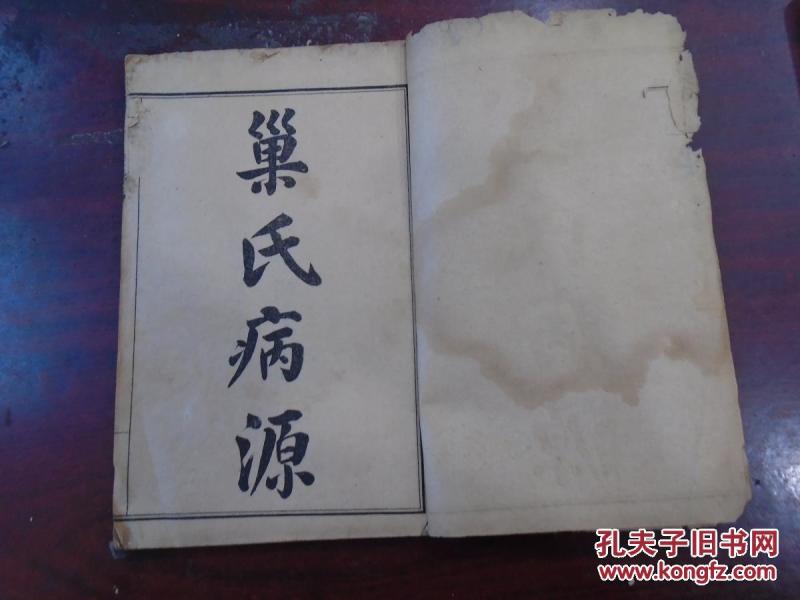 巢氏病源
孔夫子旧书网
www.kongfz.com